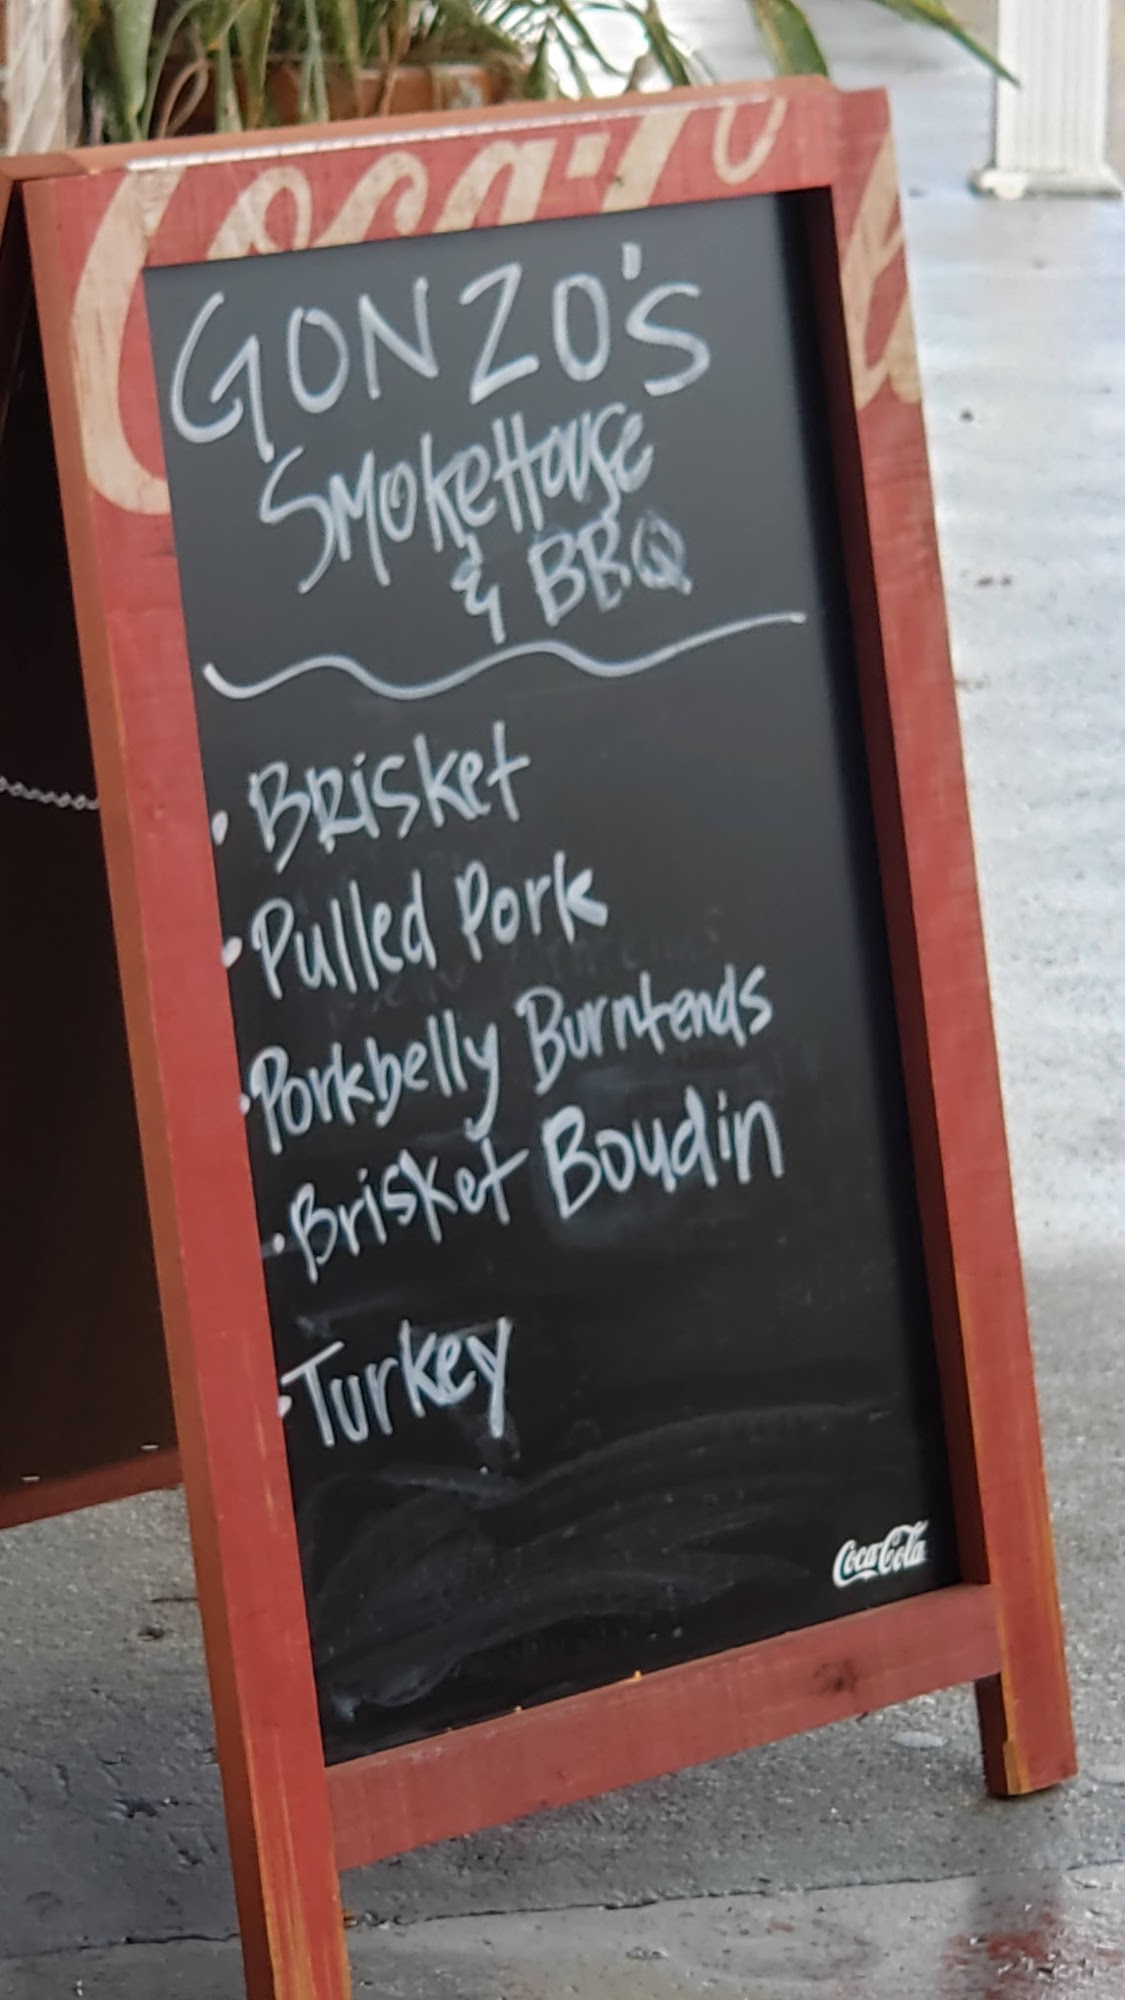 Coca-Co
GONZO'S
SMOKEHOUSE
& BBQ
• BRisket
• Pulled Pork
• Porkbelly Burntends
• Brisket Boudin
• Turkey
Coca-Cola